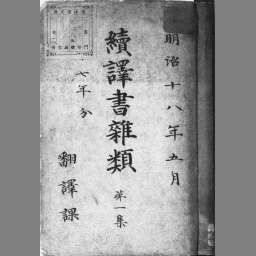 明治十八年五月
續譯書雜類
第一集
七年分
翻譯課